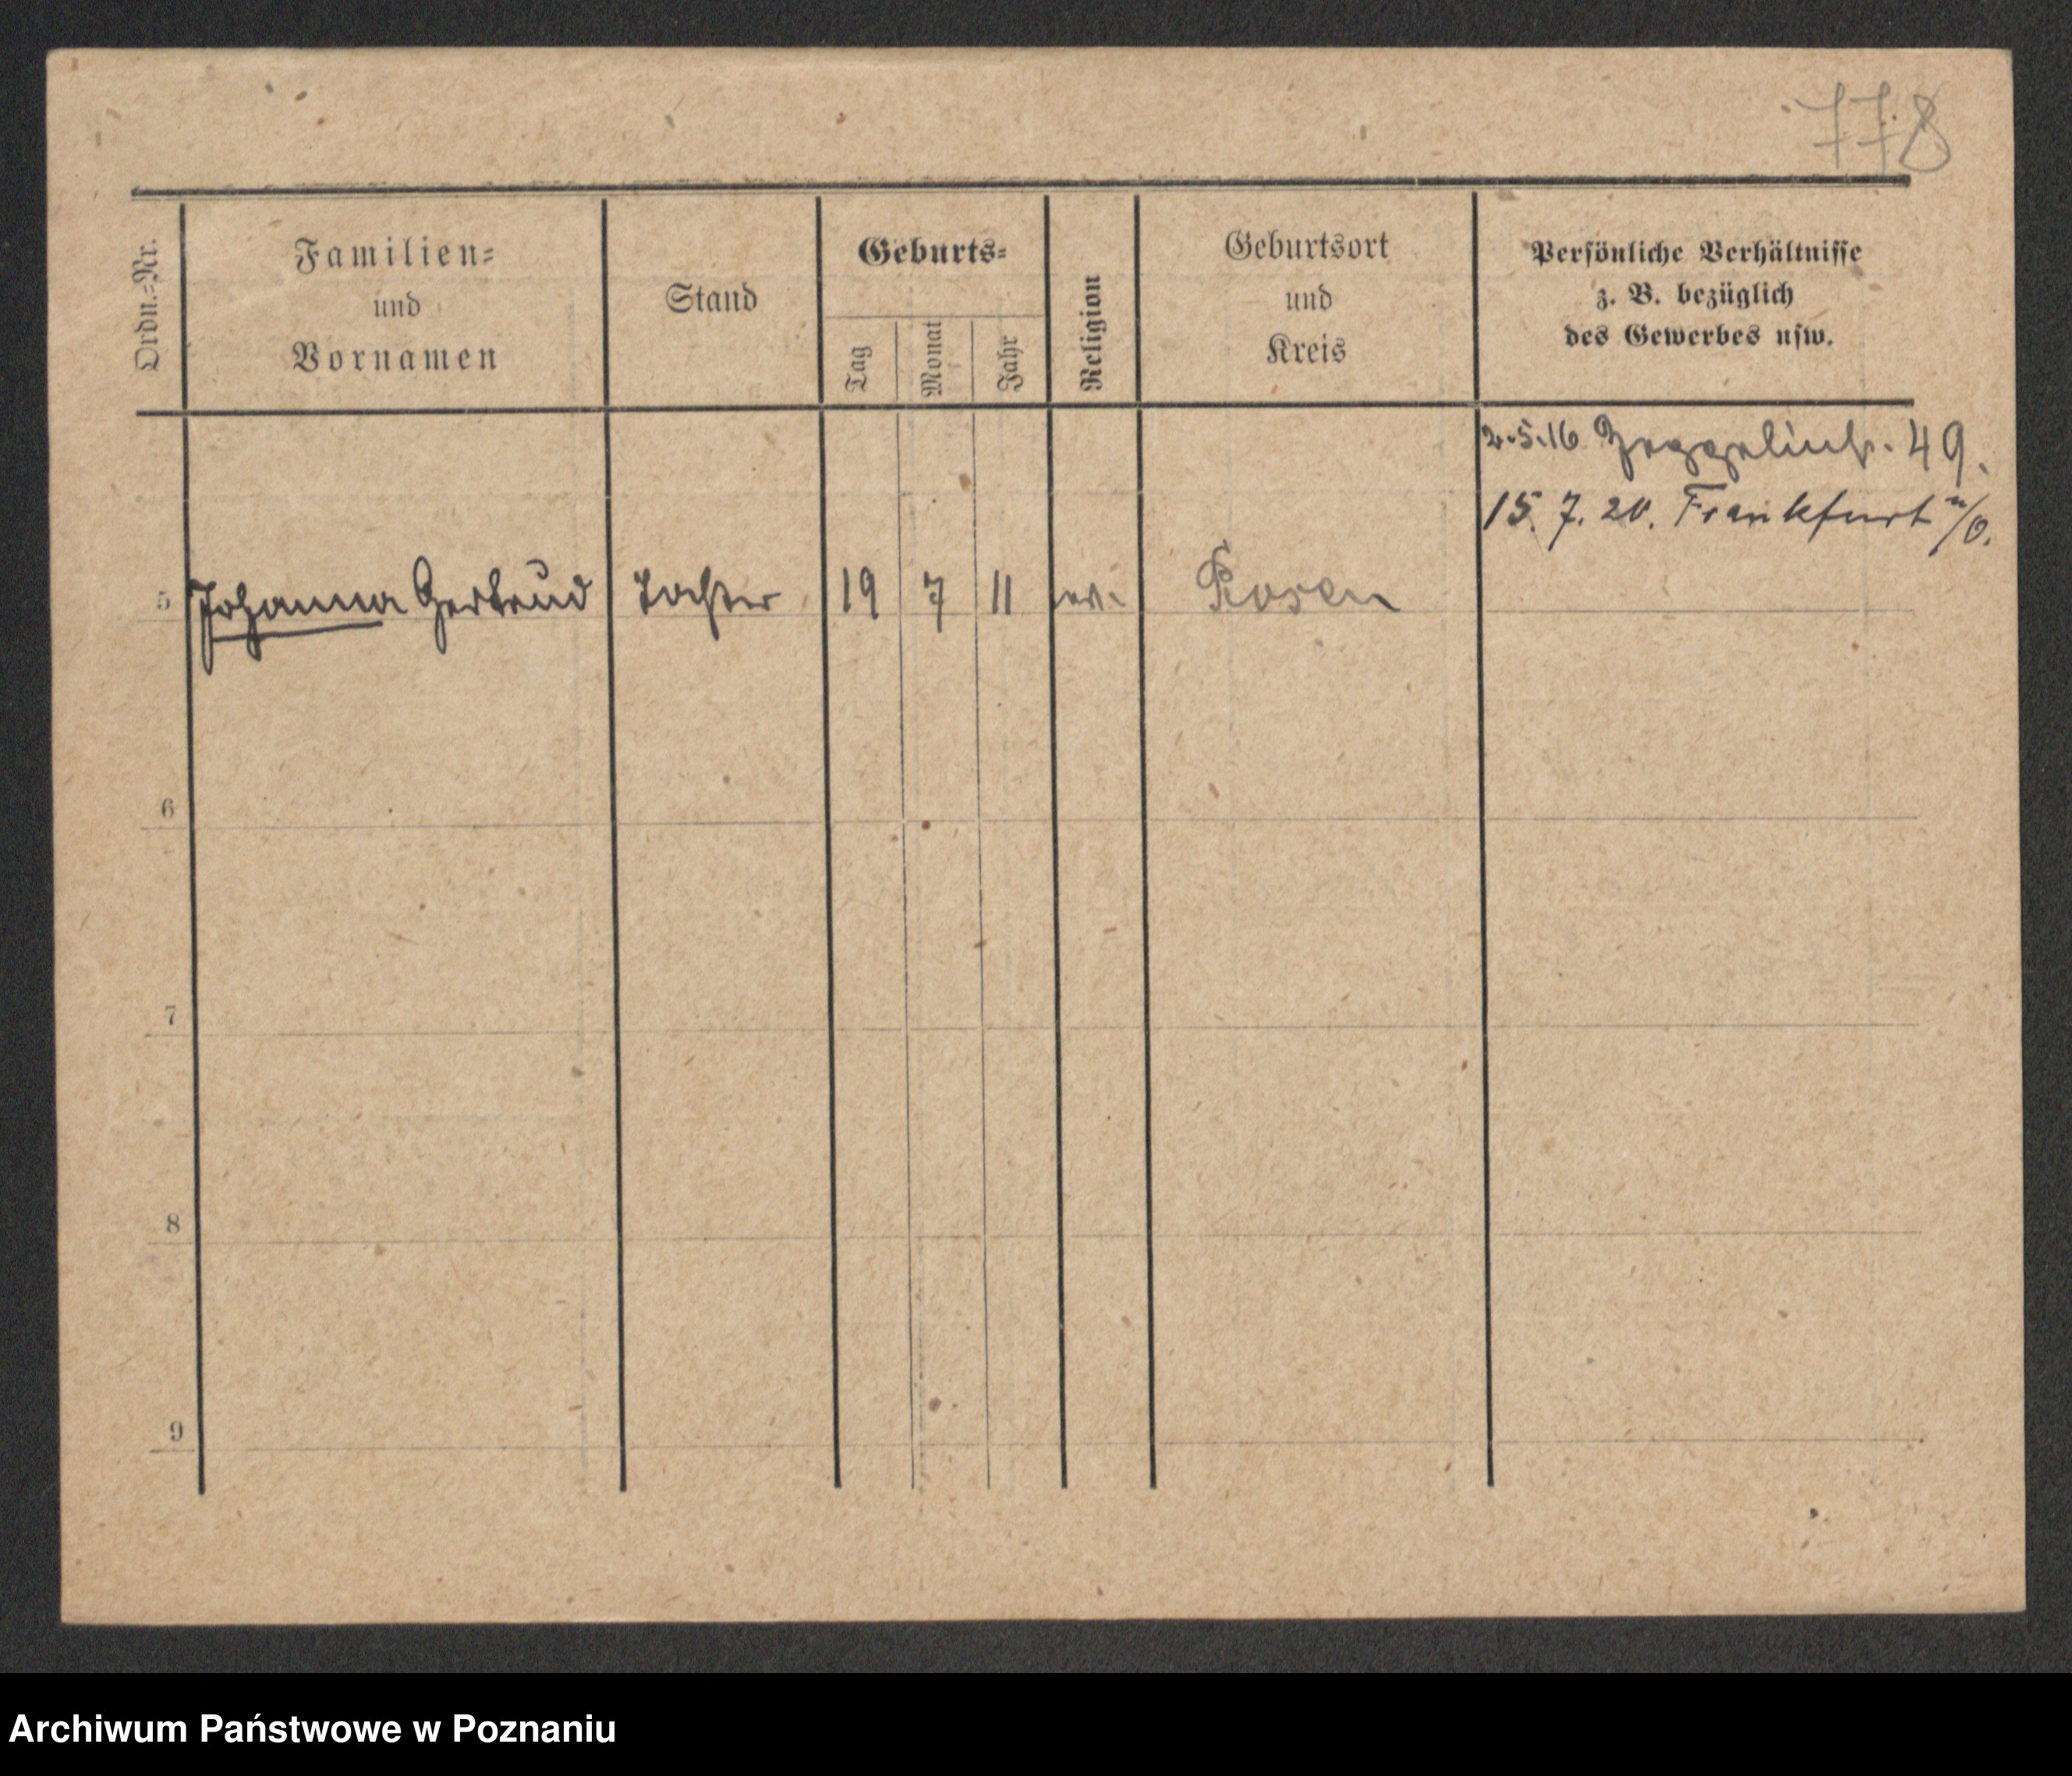 778
Ordn.-Nr.
Familien-
und
Vornamen
Stand
Geburts-
Tag
Monat
Jahr
Religion
Geburtsort
und
Kreis
Persönliche Verhältnisse
z. B. bezüglich
des Gewerbes usw.
2.5.16 Zeppelinstr. 49.
15. 7. 20. Frankfurt a/O.
5 Johanna Gertrud Tochter 19 7 11 ev. Posen
6
7
8
9
Archiwum Państwowe w Poznaniu